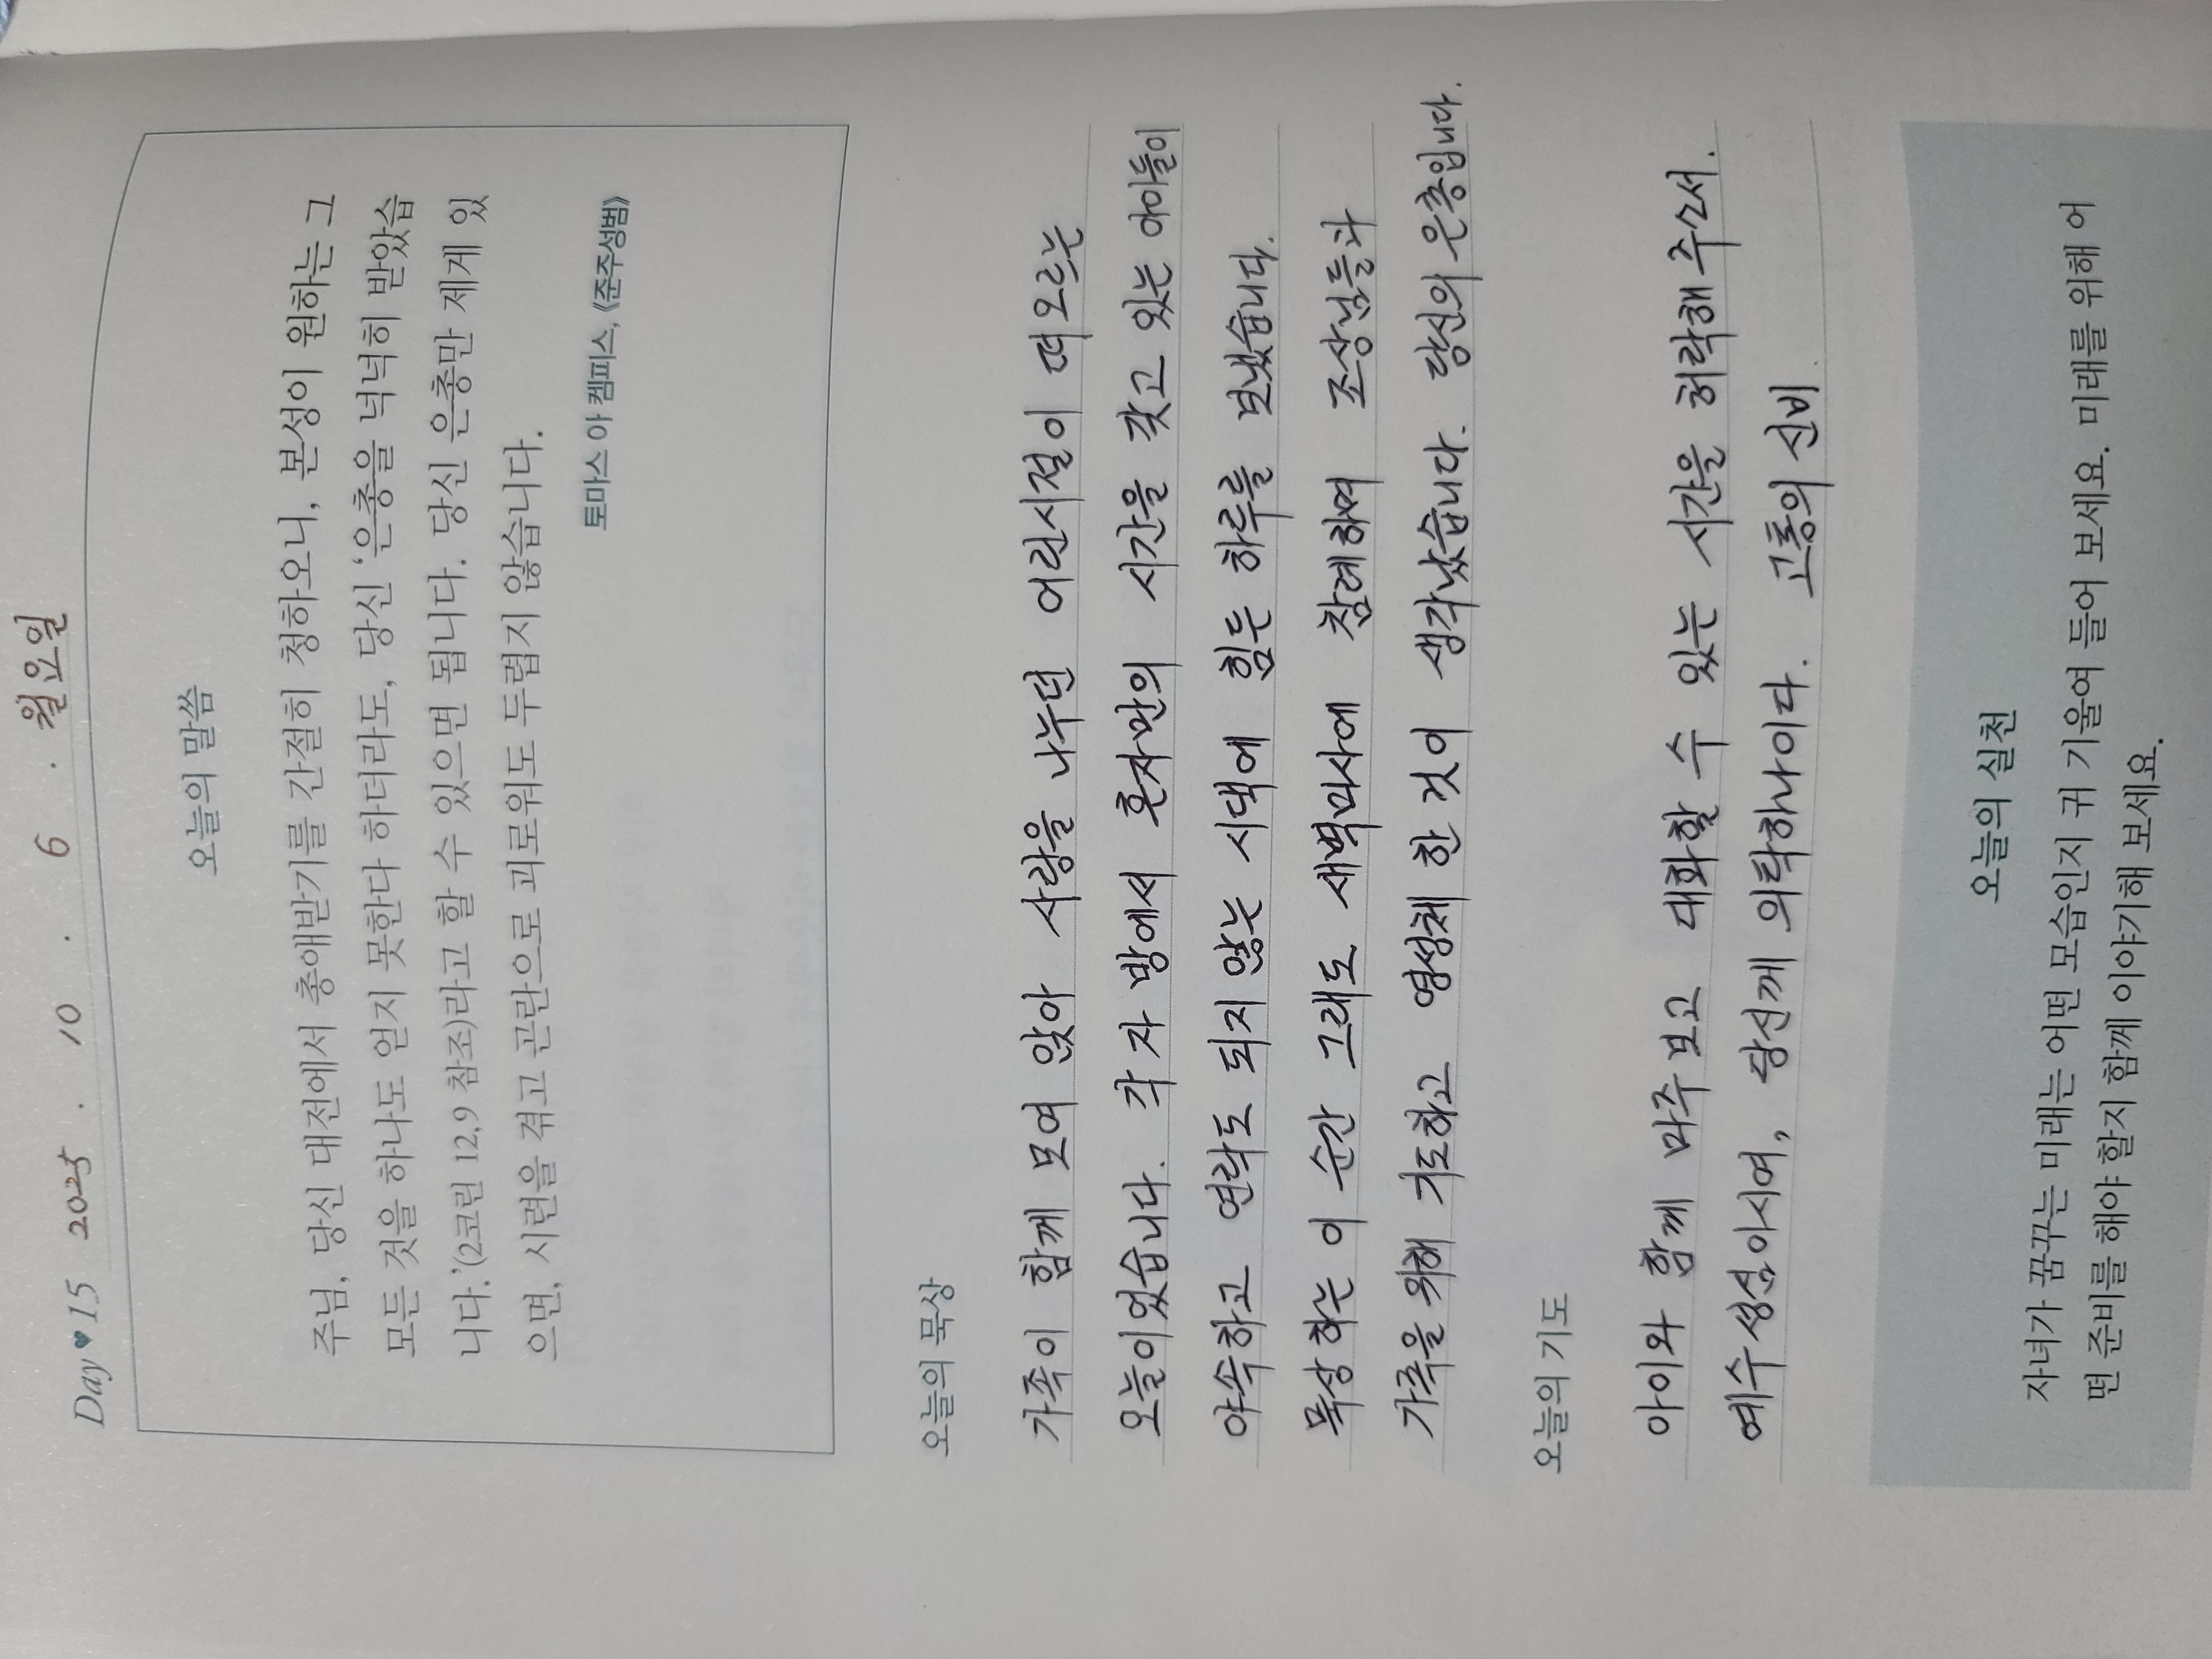 Day♥15 2025. 10. 6. 월요일
오늘의 말씀
주님, 당신 대전에서 총애받기를 간절히 청하오니, 본성이 원하는 그
모든 것을 하나도 얻지 못한다 하더라도, 당신 ‘은총을 넉넉히 받았습
니다.’(2코린 12,9 참조)라고 할 수 있으면 됩니다. 당신 은총만 제게 있
으면, 시련을 겪고 곤란으로 괴로워도 두렵지 않습니다.
토마스 아 켐피스, 《준주성범》
오늘의 묵상
가족이 함께 모여 앉아 사랑을 나누던 어린시절이 떠오르는
오늘이었습니다. 각자 방에서 혼자만의 시간을 갖고 있는 아이들이
야속하고 연락도 되지 않는 시댁에 힘든 하루를 보냈습니다.
묵상하는 이 순간 그래도 새벽미사에 참례하여 조상님들과
가족을 위해 기도하고 영성체 한 것이 생각났습니다. 당신의 은총입니다.
오늘의 기도
아이와 함께 마주보고 대화할 수 있는 시간을 허락해 주소서.
예수성심이시여, 당신께 의탁하나이다. 고통의 신비
오늘의 실천
자녀가 꿈꾸는 미래는 어떤 모습인지 귀 기울여 들어 보세요. 미래를 위해 어
떤 준비를 해야 할지 함께 이야기해 보세요.